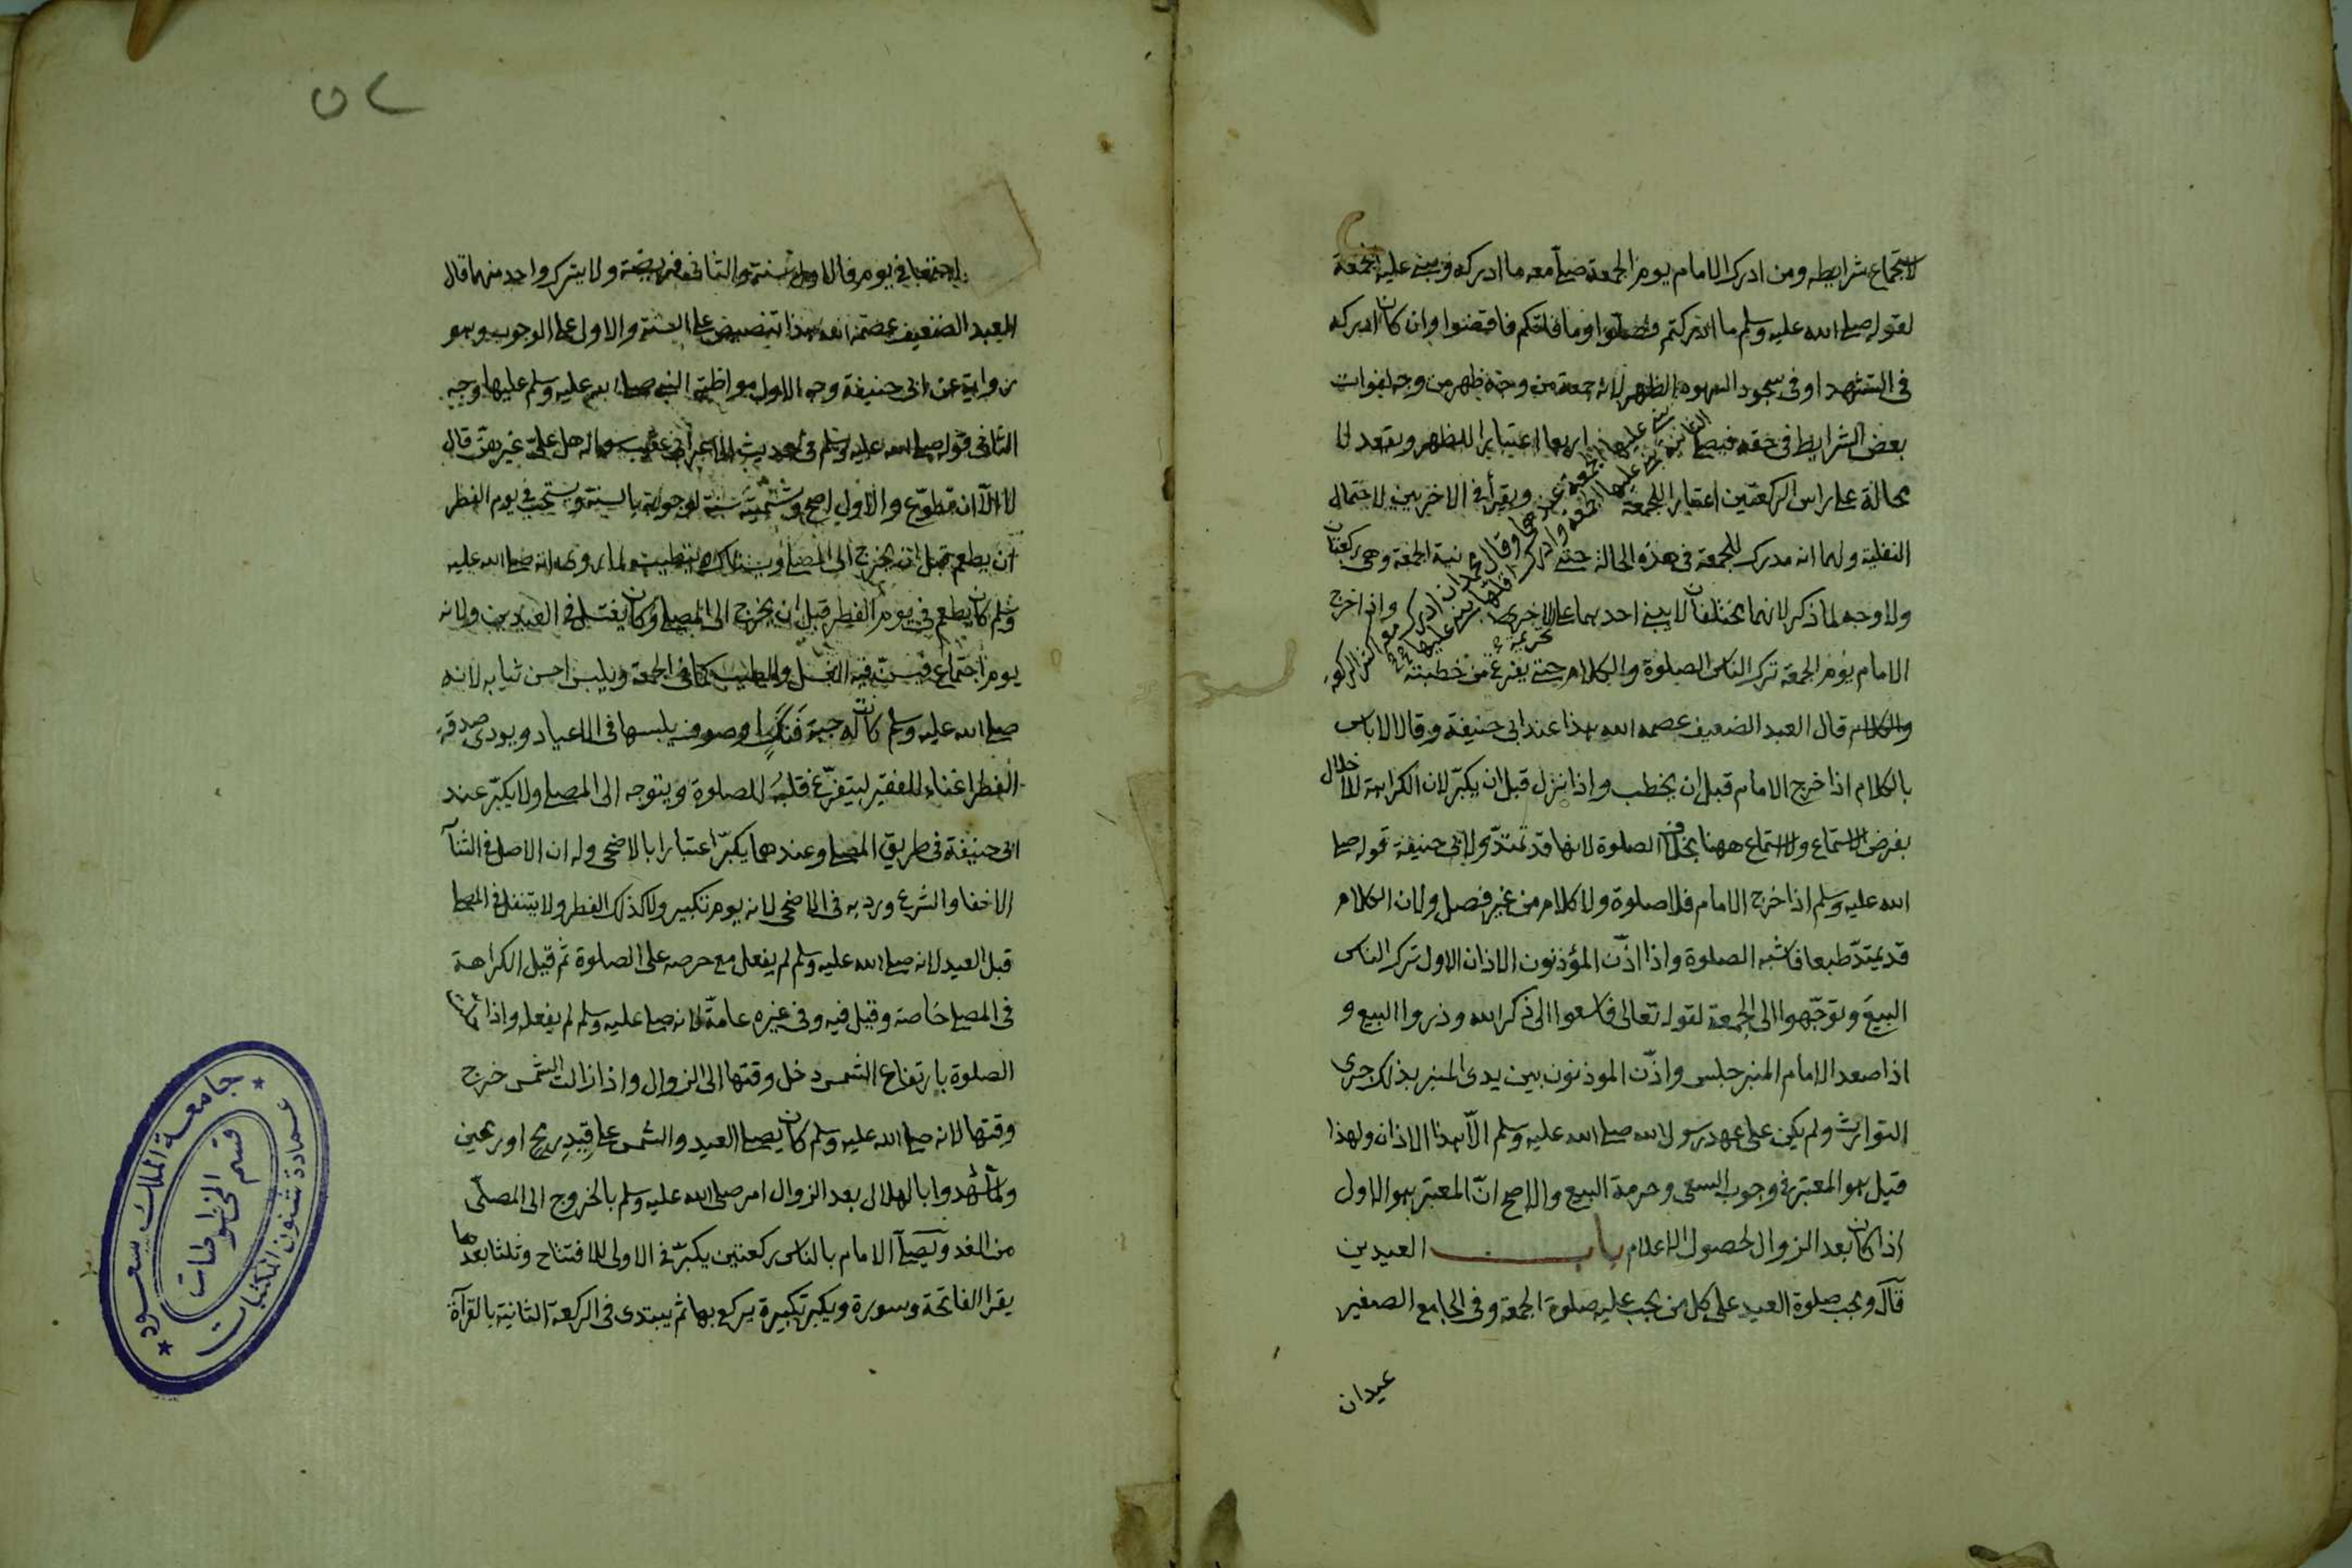 لاستجماع شرايطه ومن ادرك الامام يوم الجمعة صلى معه ما ادركه وبنى عليه الجمعة
لقوله صلى الله عليه وسلم ما ادركتم فصلوا وما فاتكم فاقضوا وان كان ادركه
في التشهد او في سجود السهو الظهر لانه جمعة من وجه ظهر من وجه لفوات
بعض الشرايط في حقه فيصلي اربعا اعتبارا للظهر ويقعد لا
محالة على راس الركعتين اعتبارا للجمعة ويقرأ في الاخريين لاحتمال
النفلية ولهما انه مدرك للجمعة في هذه الحالة حتى نية الجمعة وهي ركعتان
ولا وجه لما ذكر لانهما مختلفان لا يبنى احدهما على الاخر واذا خرج
الامام يوم الجمعة ترك الناس الصلوة والكلام حتى يفرغ من خطبته
والكلام قال العبد الضعيف عصمه الله هذا عند ابي حنيفة وقالا لا باس
بالكلام اذا خرج الامام قبل ان يخطب واذا نزل قبل ان يكبر لان الكراهة للاخلال
بفرض الاستماع ولا استماع ههنا بخلاف الصلوة لانها قد تمتد ولابي حنيفة قوله صلى
الله عليه وسلم اذا خرج الامام فلا صلوة ولا كلام من غير فصل ولان الكلام
قد يمتد طبعا فاشبه الصلوة واذا اذن المؤذنون الاذان الاول ترك الناس
البيع وتوجهوا الى الجمعة لقوله تعالى فاسعوا الى ذكر الله وذروا البيع و
اذا صعد الامام المنبر جلس واذن الموذنون بين يدى المنبر بذلك جرى
التوارث ولم يكن على عهد رسول الله صلى الله عليه وسلم الا هذا الاذان ولهذا
قيل هو المعتبر في وجوب السعي وحرمة البيع والاصح ان المعتبر هو الاول
اذا كان بعد الزوال لحصول الاعلام باب العيدين
قال وتجب صلوة العيد على كل من تجب عليه صلوة الجمعة وفي الجامع الصغير
عيدان
٥٢
اجتمعا في يوم فالاول سنة والثاني فريضة ولا يترك واحد منهما قال
العبد الضعيف عصمه الله هذا تنصيص على السنة والاول على الوجوب وهو
رواية عن ابي حنيفة وجه الاول مواظبة النبي صلى الله عليه وسلم عليها وجه
الثاني قوله صلى الله عليه وسلم في حديث الاعرابي عقيب سواله هل علي غيرهن قال
لا الا ان تطوع والاول اصح وتسميته سنة لوجوبه بالسنة ويستحب في يوم الفطر
ان يطعم قبل ان يخرج الى المصلى ويستاك ويتطيب لما روى انه صلى الله عليه
وسلم كان يطعم في يوم الفطر قبل ان يخرج الى المصلى وكان يغتسل في العيدين ولانه
يوم اجتماع فيسن فيه الغسل والطيب كما في الجمعة ويلبس احسن ثيابه لانه
صلى الله عليه وسلم كان له جبة فنك او صوف يلبسها في الاعياد ويودى صدقة
الفطر اغناء للفقير ليتفرغ قلبه للصلوة ويتوجه الى المصلى ولا يكبر عند
ابي حنيفة في طريق المصلى وعندهما يكبر اعتبارا بالاضحى وله ان الاصل في الثنآ
الاخفا والشرع ورد به في الاضحى لانه يوم تكبير ولا كذلك الفطر ولا يتنفل في المصلى
قبل العيد لانه صلى الله عليه وسلم لم يفعل مع حرصه على الصلوة ثم قيل الكراهة
في المصلى خاصة وقيل فيه وفي غيره عامة لانه صلى عليه وسلم لم يفعله واذا
الصلوة بارتفاع الشمس دخل وقتها الى الزوال واذا زالت الشمس خرج
وقتها لانه صلى الله عليه وسلم كان يصلى العيد والشمس على قيد رمح او رمحين
ولما شهدوا بالهلال بعد الزوال امر صلى الله عليه وسلم بالخروج الى المصلى
من الغد ويصلى الامام بالناس ركعتين يكبر في الاولى للافتتاح وثلثا بعدها
يقرا الفاتحة وسورة ويكبر تكبيرة يركع بها ثم يبتدى في الركعة الثانية بالقرآة
جامعة الملك سعود
قسم المخطوطات
عمادة شئون المكتبات